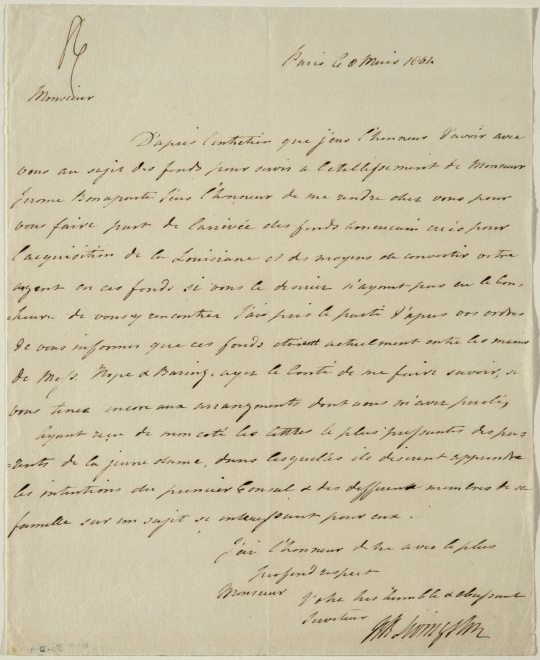 Paris le 8 Mars 1804
Monsieur
D'apres l'entretien que j'eus l'honneur d'avoir avec
vous au sujet des fonds pour servir a l'etablissement de Monsieur
Jerome Bonaparte j'eus l'honneur de me rendre chez vous pour
vous faire part de l'arrivée des fonds americain creés pour
l'acquisition de la Louisiane et des moyens de convertir votre
argent en ces fonds si vous le desirier n'ayant pas eu le bon-
-heur de vous y rencontrer j'ais pris le parti d'apres vos ordres
de vous informer que ces fonds etoient actuelment entre les mains
de Mess. Hope & Baring. ayez la bonté de me faire savoir, si
vous tenez encore aux arrangments dont vous m'avez parlés,
ayant recu de mon coté les lettres le plus pressantes des pa-
-rents de la jeune dame, dans lesquelles ils desirent apprendre
les intentions du premier Consul & des differents membres de sa
famille sur un sujet si interessant pour eux.
J'ai l'honneur d'etre avec le plus
profond respect
Monsieur
Votre tres humble & obeissant
Serviteur
Livingston